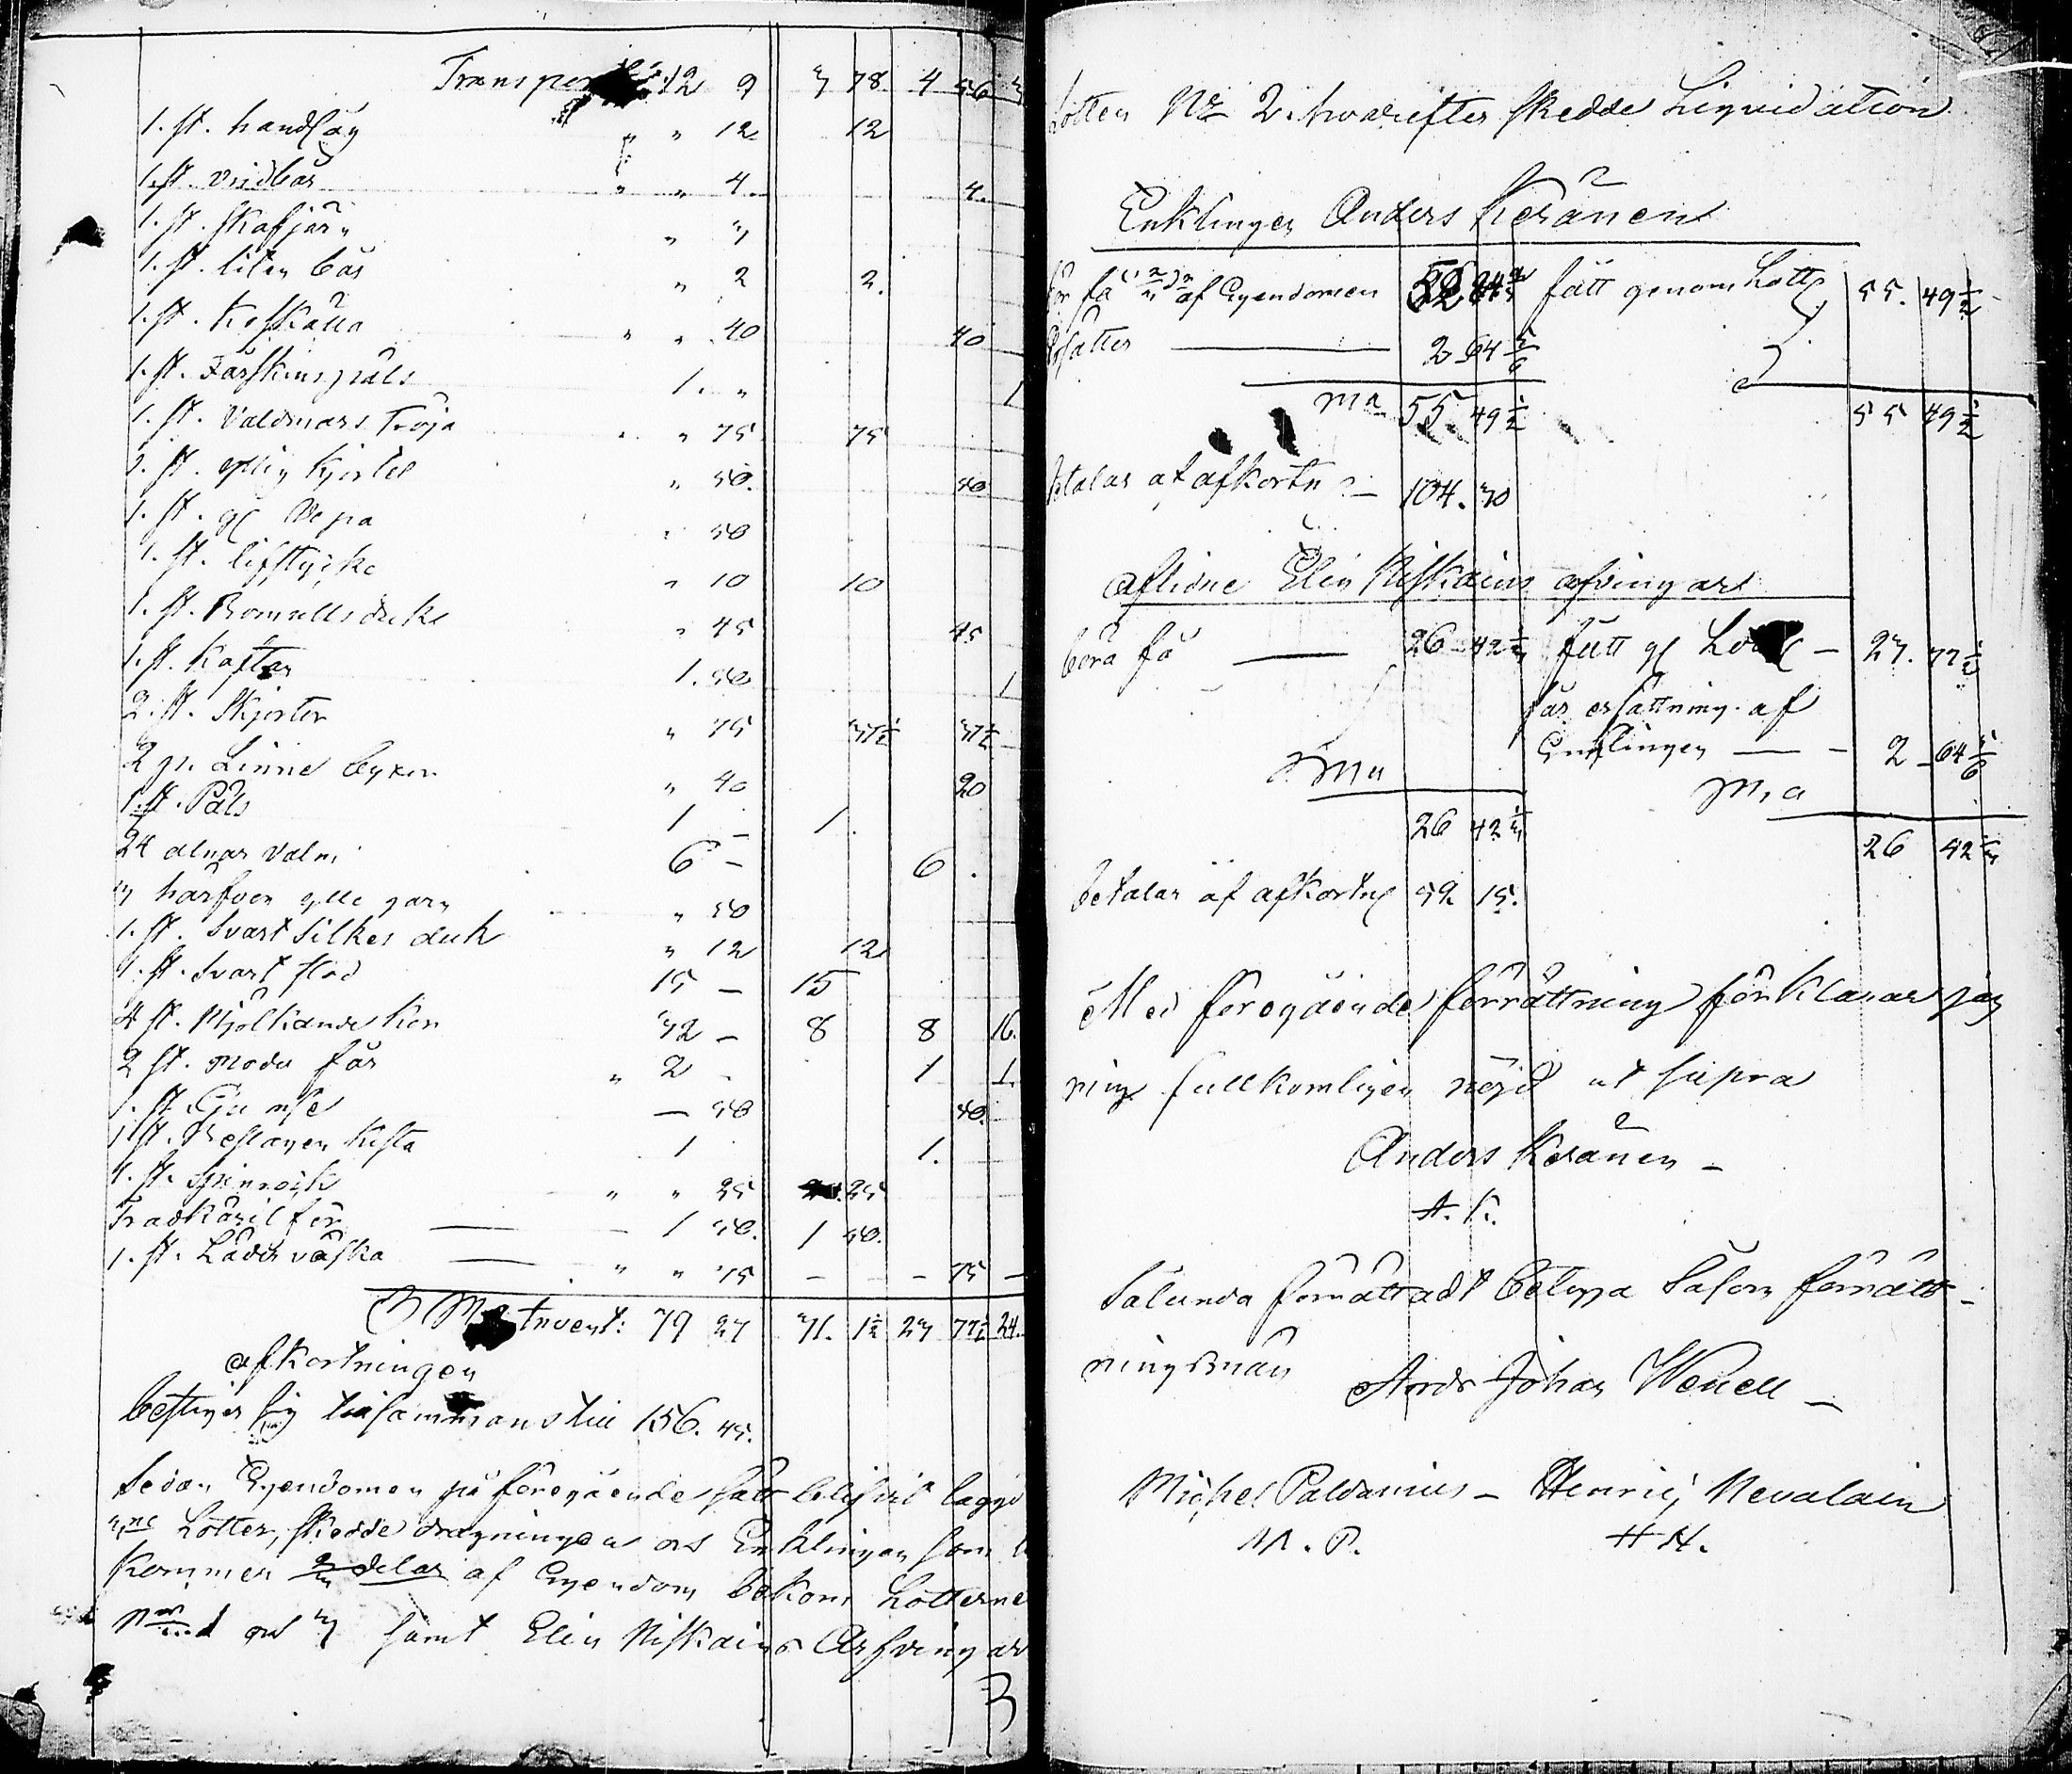 Transport 12 9 3 78 4 56 3
1. st. handsåg " " 12 12
1. st. vridbår " " 4. 4.
1. st. skafjärn " 3
1. st. liten bår " 2 2.
1. st. " " 40 40
1. st. Fårskinspäls 1. " 1
1. st. Valdmars Tröja " 75 75
1. st. yllig kjortel " 50. 50
1. st. gl Vepa " 50
1. st. lifstycke " 10 10
1. st. Bomulls duk " 45 45
1. st. Kaftan 1. 50 1
2. st. Skjortor " 75 37½ 37½
2 pr. Linne byxor " 40 20
1. st. Päls 1 – 1.
24 alnar valm 6 – 6.
3 härfvor ylle garn " 50
1. st. Svart Silkes duk " 12 12
1. st. Svart 15 – 15
4 st. Mjölkande kor 32 – 8 8 16.
2 st. moder får " 2 1 1.
1. st. – 50 50.
1 st. Beslagen kista 1 1.
1. st. Spinrock " " 25 25
Trädkäril för 1 50. 1 50.
1. st. Läder väska " " 75 – – 75 –
Invent: 79 27 31. 1½ 23 77½ 24.
afkortningen
bestiger sig tillsammans till 156. 45.
Sedan Egendomen på föregående sätt blifvit lagd
3ne Lotter, skedde dragningen och Enklingen som
kommer 2/3 delar af Egendom bekom Lotterne
1 och 3 samt Elin Niskains Arfvingar
Lotten No 2. hvarefter skedde Liqvidation
Enklingen Anders Keränen
bör få 2/3 af Egendomen 52 84 2/3 fått genom Lott 55. 49½
Ersätter 2 64 5/6
Sma 55 49½ 55 49½
betalar af afkortn 104. 30
aflidne Elin Niskains arfvingar
böra få 26 42 1/3 fått gl Lott – 23. 77½
får ersättning af
Enklingen 2 64 5/6
Sma Sma
26 42 1/3 26 42 1/3
betalar af afkortn 52 15.
Med föregående förrättning förklarar jag
mig fullkomligen nöjd ut supra
Anders Keränen –
A. K.
Sålunda förrättadt betyga såsom förrätt-
ningsmän Anders Johan Wenell –
Michel Paldanius – Henric Nevalain
M. P. H N.